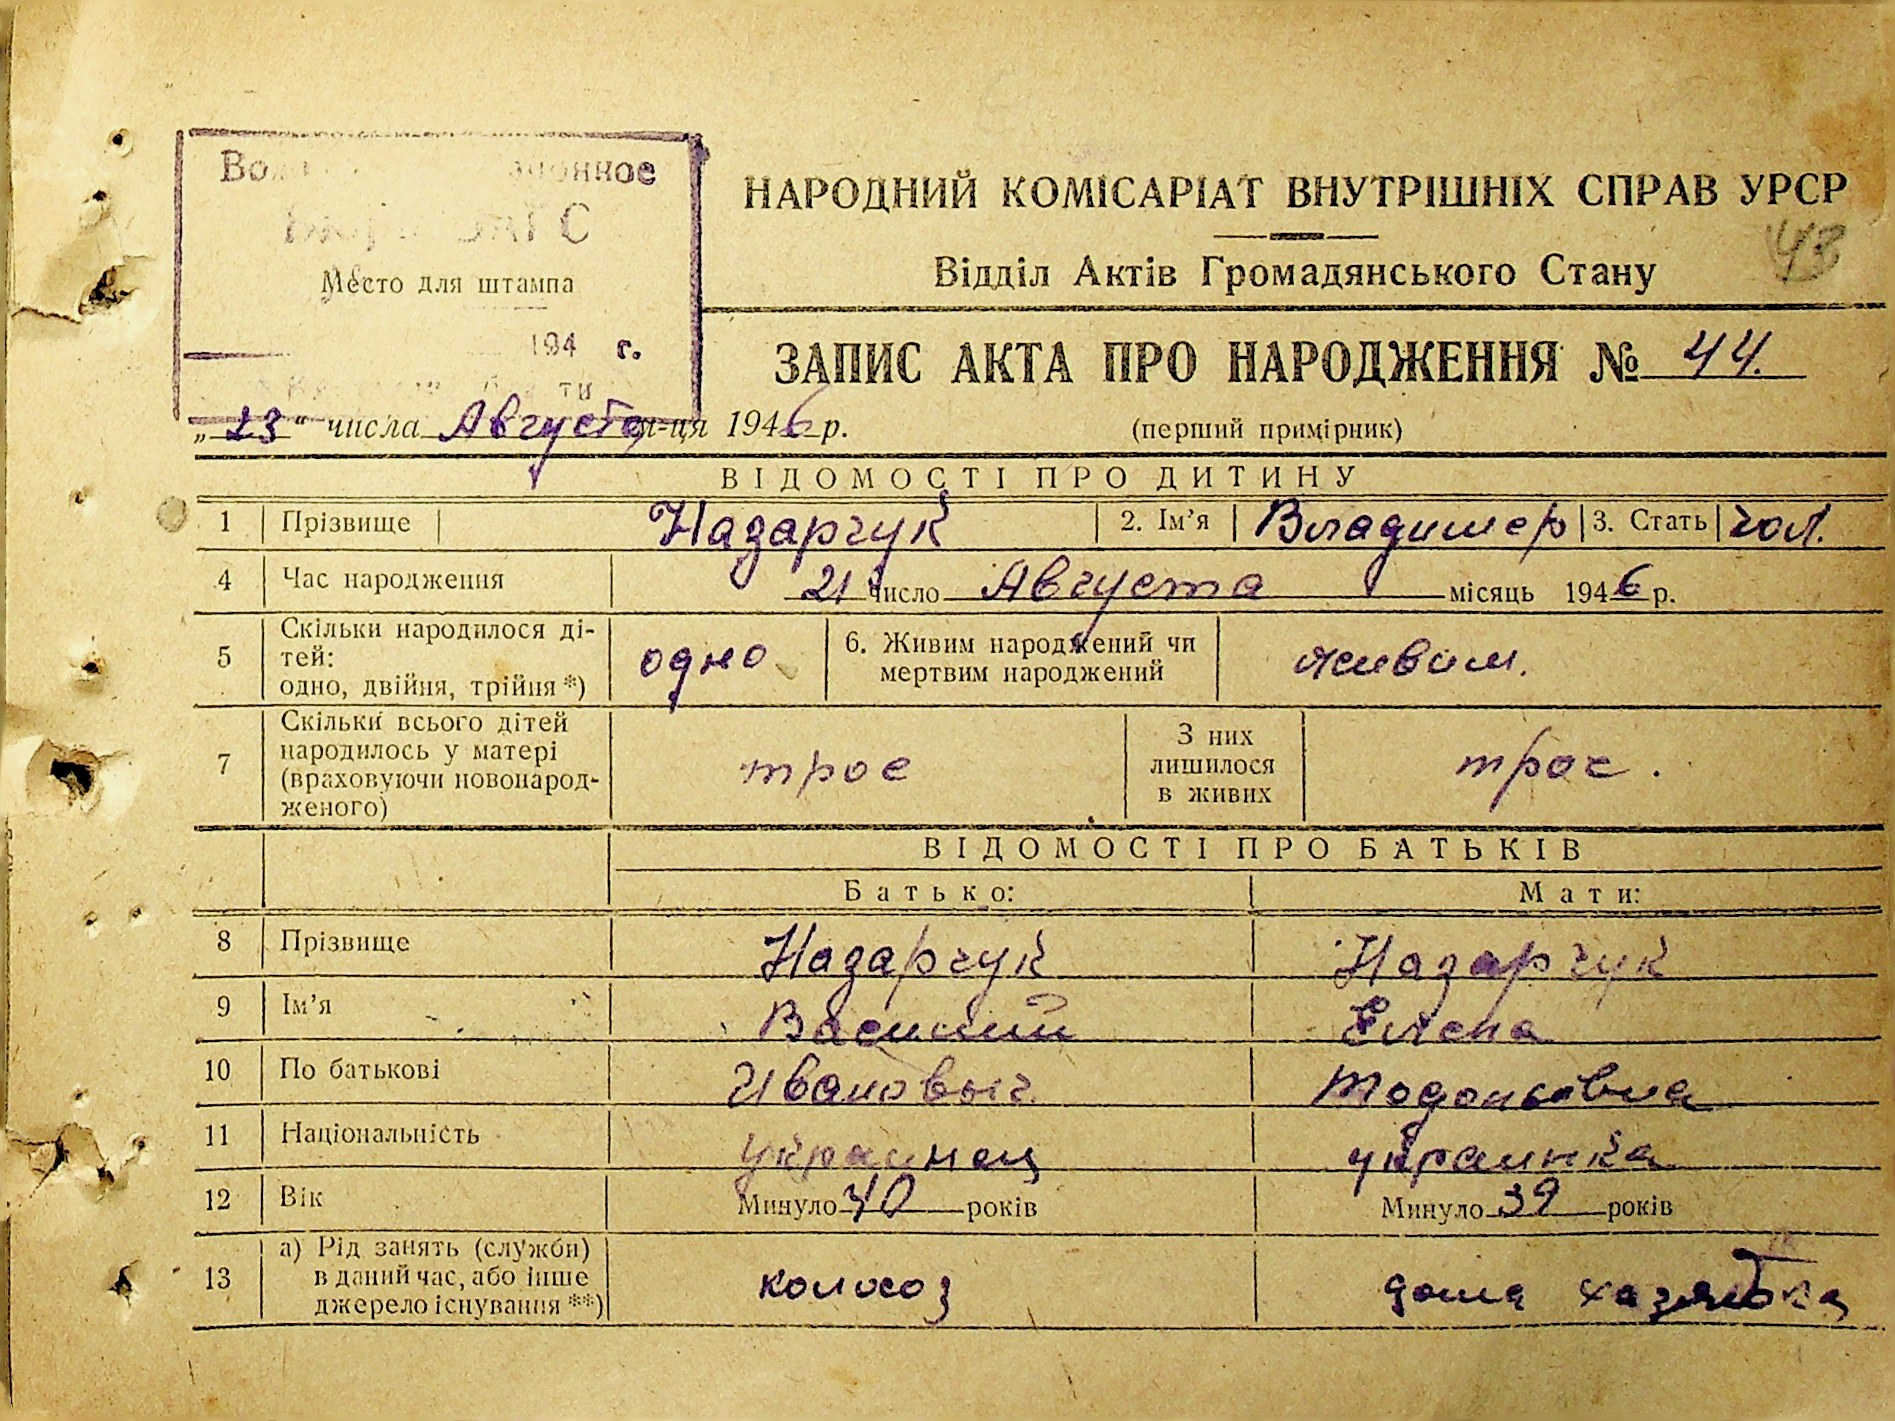 ЗАГС
Место для штампа
194 г.
НАРОДНИЙ КОМІСАРІАТ ВНУТРІШНІХ СПРАВ УРСР
43
Відділ Актів Громадянського Стану
ЗАПИС АКТА ПРО НАРОДЖЕННЯ № 44.
„23“ числа Августа м-ця 1946 р. (перший примірник)
ВІДОМОСТІ ПРО ДИТИНУ
1 Прізвище Назарчук 2. Ім’я Владимер 3. Стать чол.
4 Час народження 21 число Августа місяць 1946 р.
5 Скільки народилося ді-
тей:
одно, двійня, трійня *) одно 6. Живим народжений чи
мертвим народжений живим.
7 Скільки всього дітей
народилось у матері
(враховуючи новонарод-
женого) трое З них
лишилося
в живих трое.
ВІДОМОСТІ ПРО БАТЬКІВ
Батько: Мати:
8 Прізвище Назарчук Назарчук
9 Ім’я Василий Елена
10 По батькові Ивановыч
11 Національність украинец украинка
12 Вік Минуло 40 років Минуло 39 років
13 а) Рід занять (служби)
в даний час, або інше
джерело існування **) колхоз дома хазяйка